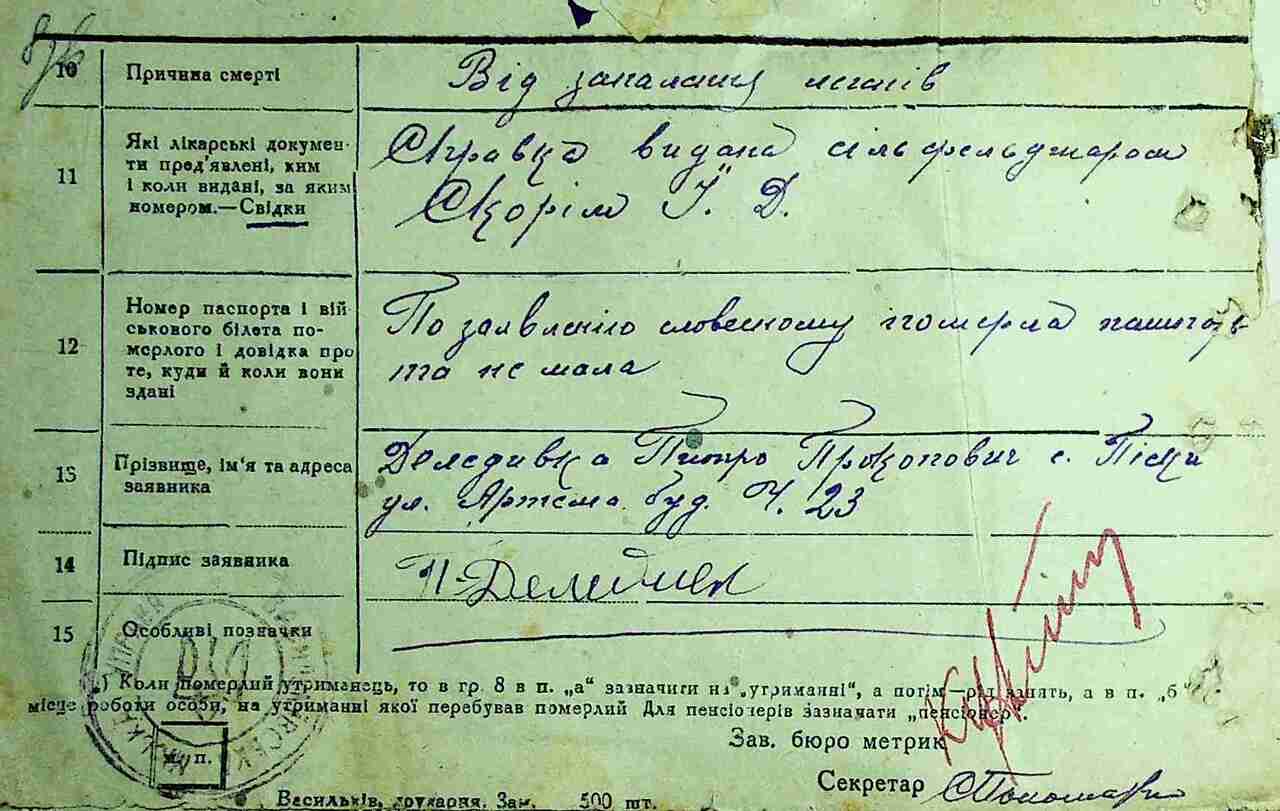 10 Причина смерті
Від запалання легенів
11 Які лікарські докумен-
ти пред'явлені, ким
і коли видані, за яким
номером.—Свідки
Справка видана сільфельдшаром
Скорім Й. Д.
12 Номер паспорта і вій
ськового білета по-
мерлого і довідка про
те, куди й коли вони
здані
По заявленію словесному померла пашпор-
та не мала
13 Прізвище, ім'я та адреса
заявника
Петро Прокопович с. Піски
ул. Артема буд. Ч. 23
14 Підпис заявника
15 Особливі позначки
*) Коли померлий утриманець, то в гр. 8 в п. „а“ зазначити на „утриманні“, а потім—рід занять, а в п. „б“
місце роботи особи, на утриманні якої перебував померлий Для пенсіонерів зазначати „пенсіонер“.
Зав. бюро метрик
м. п.
Секретар
Васильків, друкарня. Зам. 500 шт.